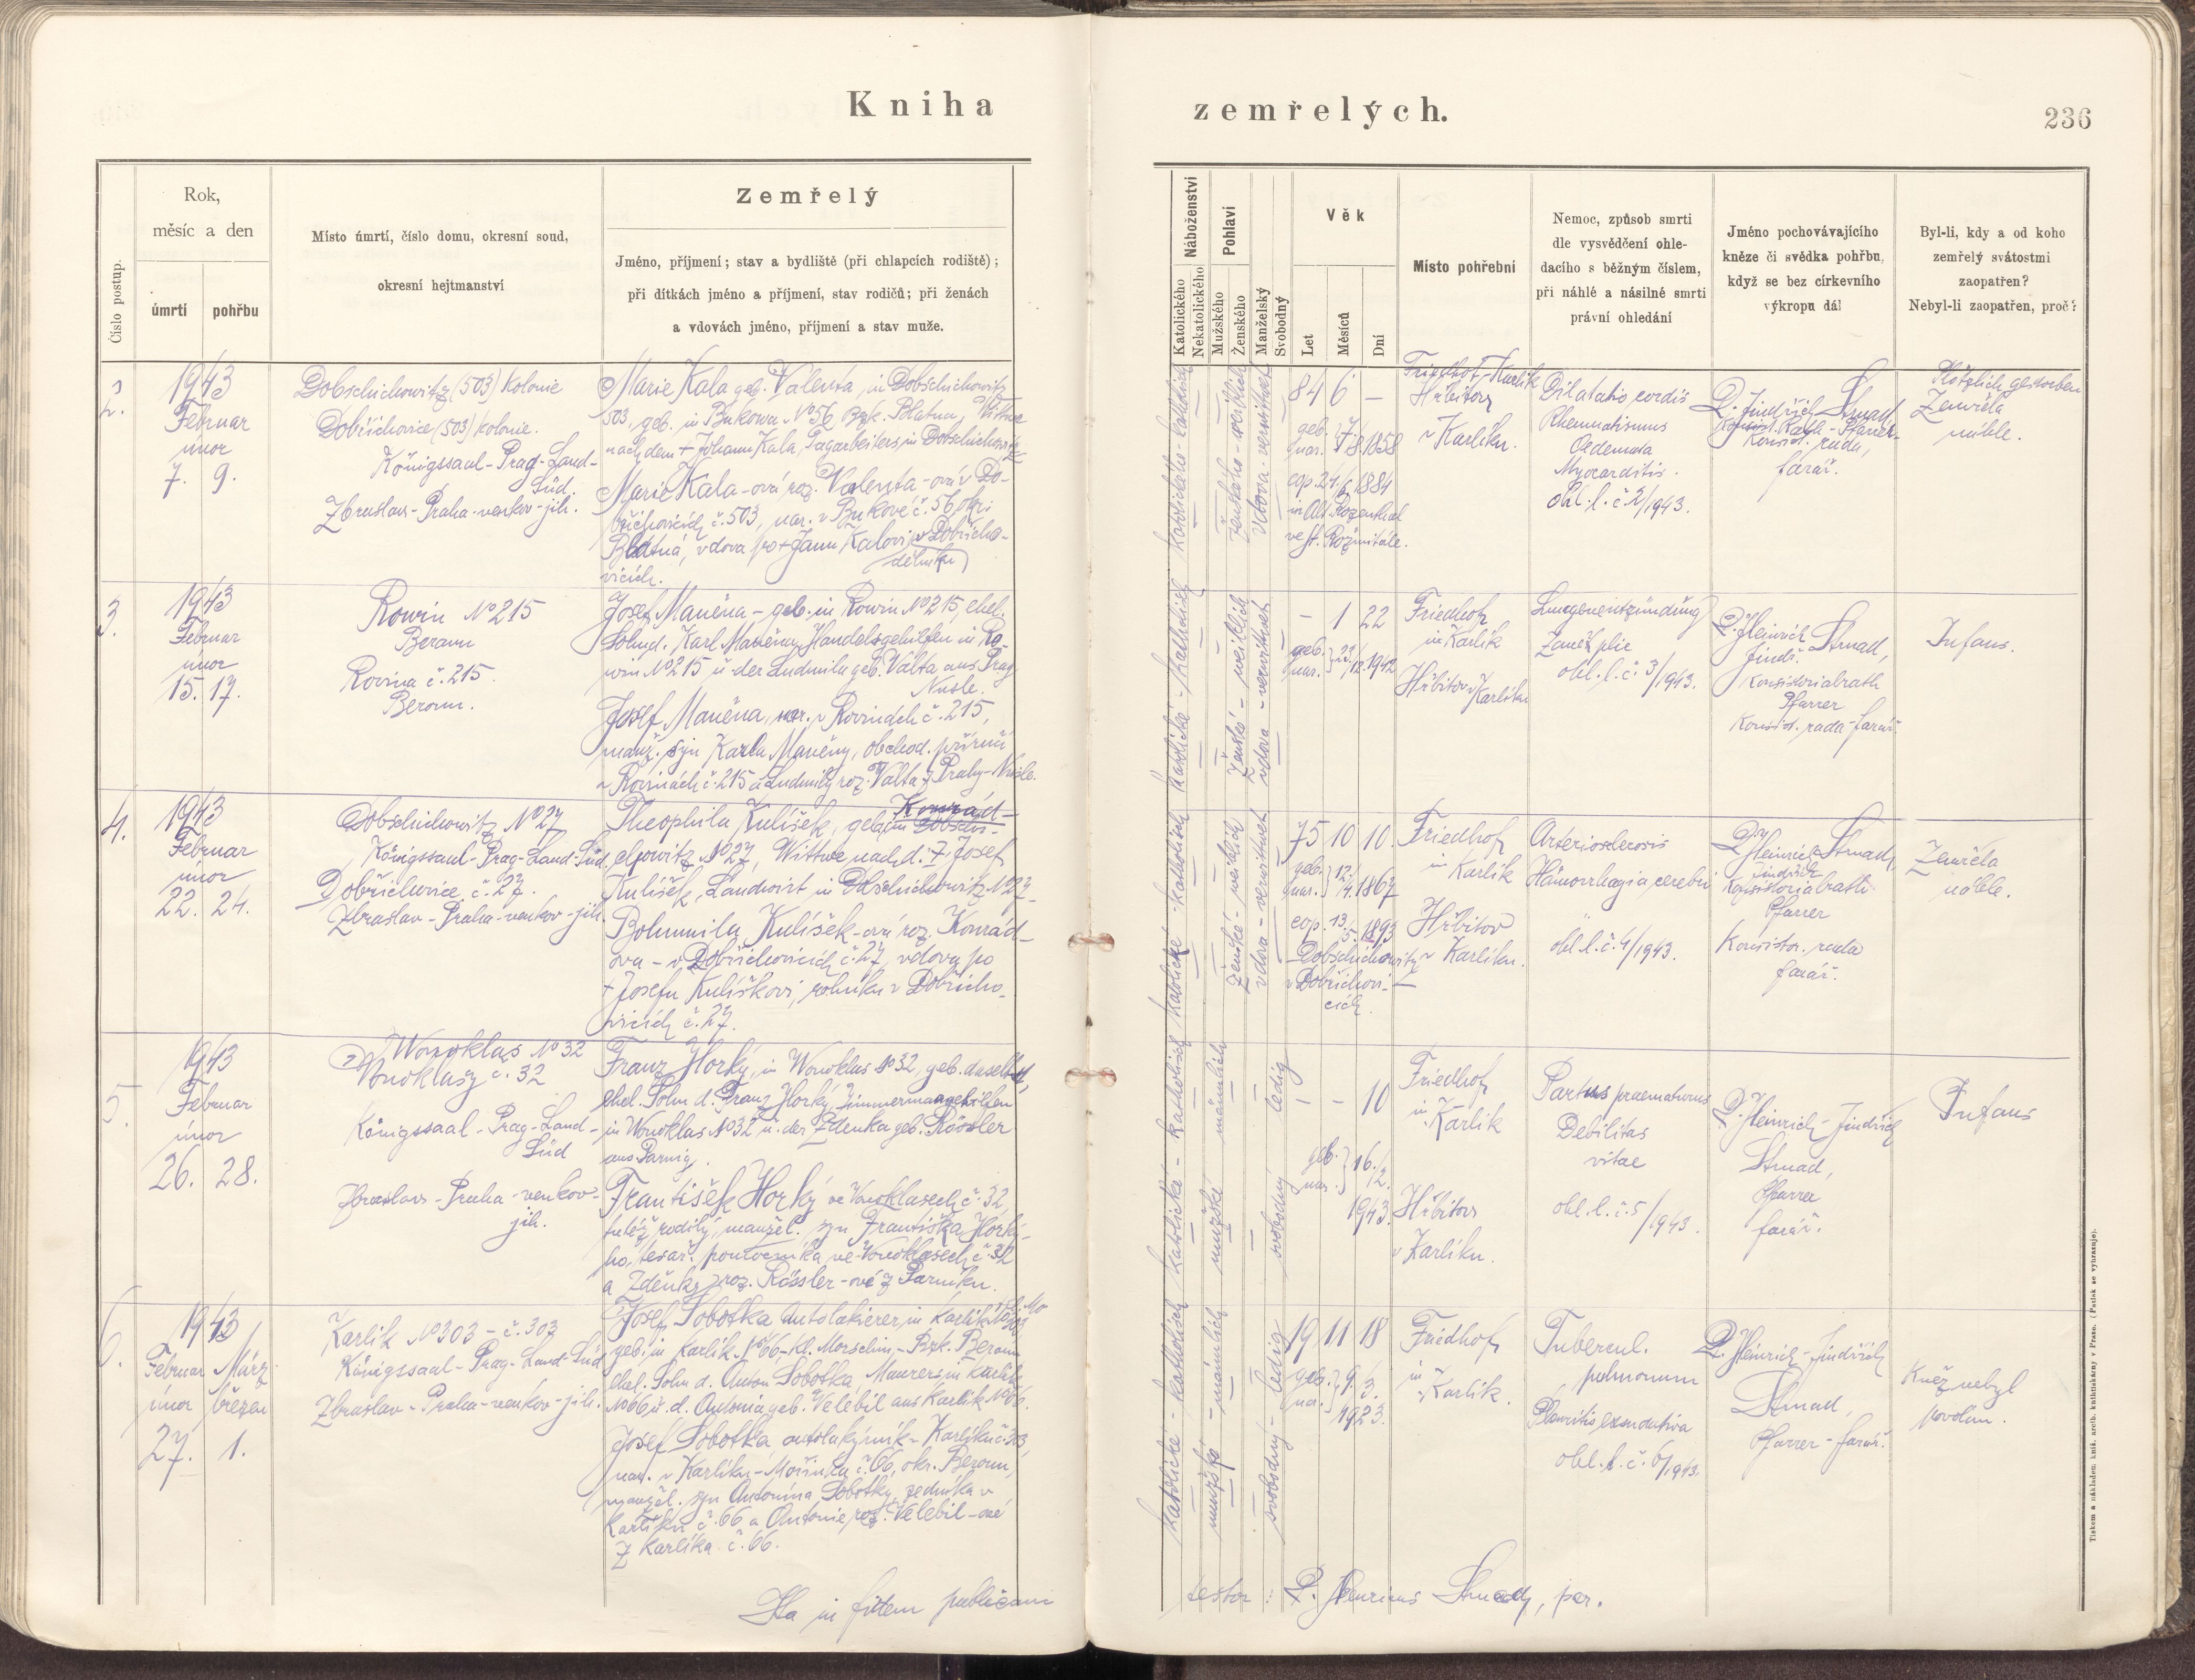 Kniha zemřelých.
236
Číslo postup.
Rok,
měsíc a den
úmrtí
pohřbu
Místo úmrtí, číslo domu, okresní soud,
okresní hejtmanství
Zemřelý
Jméno, příjmení; stav a bydliště (při chlapcích rodiště);
při dítkách jméno a příjmení, stav rodičů; při ženách
a vdovách jméno, příjmení a stav muže.
Náboženství
Katolického
Nekatolického
Pohlaví
Mužského
Ženského
Manželský
Svobodný
Věk
Let
Měsíců
Dní
Místo pohřební
Nemoc, způsob smrti
dle vysvědčení ohle-
dacího s běžným číslem,
při náhlé a násilné smrti
právní ohledání
Jméno pochovávajícího
kněze či svědka pohřbu,
když se bez církevního
výkropu dál
Byl-li, kdy a od koho
zemřelý svátostmi
zaopatřen?
Nebyl-li zaopatřen, proč?
2.
1943
Februar
únor
7. 9.
Dobschichowitz (503) Kolonie
Dobřichovice (503) kolonie.
Königsaal-Prag-Land-
Süd.
Zbraslav-Praha-venkov-jih.
Marie Kala geb. Valenta, in Dobschichowitz
503, geb. in Bukowa No 56, Bzk. Blatna, Witwe
nach dem + Johann Kala, Tagarbeiters, in Dobschichowitz
Marie Kala-ová roz. Valenta-ová v Do-
břichovicích č. 503, nar. v Bukové č. 56 okr.
Blatná, vdova po + Janu Kalovi, v Dobřicho-
dělníku
vicích.
katolického katholisch
ženského-weiblich
vdova-verwitwet
84 6 —
geb. nar. 7. 8. 1858
cop. 24/6 1884
in Alt. Rozenthal
ve St. Rožmitále.
Friedhof-Karlík
Hřbitov
v Karlíku.
Dilatatio cordis
Rheumatismus
Oedemata
Myocarditis.
ohl. l. č. 2/1943.
P. Jindřich Strnad,
Konsist. Rath-Pfarrer
Konsist. rada,
farář.
Plötzlich gestorben
Zemřela
náhle.
3.
1943
Februar
únor
15. 17.
Rowin No 215
Beraun
Rovina č. 215.
Beroun.
Josef Maněna-geb. in Rowin No 215, ehel.
Sohn d. Karl Maněna, Handelsgehilfen in Ro-
win No 215 u der Ludmila geb. Valta aus Prag
Nusle.
Josef Maněna, nar. v Rovinách č. 215,
manž. syn Karla Maněny, obchod. příručí
v Rovinách č. 215 a Ludmily roz. Valta z Prahy-Nusle.
katolické-katholisch
ženské-weiblich
vdova-verwitwet
— 1 22
geb. nar. 23./12. 1942
Friedhof
in Karlík
Hřbitov v Karlíku
Lungenentzündung
Zánět plic
ohl. l. č. 3/1943.
P. Heinrich Strnad,
Jindř.
Konsistorialrath
Pfarrer
Konsist. rada-farář.
Infans.
4.
1943
Februar
únor
22. 24.
Dobschichowitz No 27
Königsaal-Prag-Land-Süd
Dobřichovice č. 27.
Zbraslav-Praha-venkov-jih.
Konrád-
Theophila Kulíšek, geb. in Dobschi-
chowitz No 27, Wittwe nach d. + Josef
Kulíšek, Landwirt in Dobschichowitz No 27
Bohumila Kulíšek-ová roz. Konrád-
ova-v Dobřichovicích č. 27, vdova po
+ Josefu Kulíškovi, rolníku v Dobřicho-
vicích č. 27.
katolické katholisch
ženské-weiblich
vdova-verwitwet
75 10 10.
geb. nar. 12./4. 1867
cop. 13./5. 1893
Dobschichowitz
v Dobřichovi-
cích.
Friedhof
in Karlík
Hřbitov
v Karlíku.
Arteriosclerosis
Hämorrhagia cerebri
ohl. l. č. 4/1943.
P. Heinrich Strnad,
Jindřich
Konsistorialrath
Pfarrer
Konsistor. rada
farář.
Zemřela
náhle.
5.
1943
Februar
únor
26. 28.
Wonoklas No 32
Vonoklasy č. 32
Königssaal-Prag-Land-
Süd
Zbraslav-Praha-venkov-
jih.
Franz Horký, in Wonoklas No 32, geb. daselbst,
ehel. Sohn d. Franz Horký, Zimmermangehilfen
in Wonoklas No 32 u. der Zdenka geb. Rössler
aus Parnig.
František Horký ve Vonoklasech č. 32,
tutéž rodilý, manžel. syn Františka Horké-
ho, tesař. pomocníka ve Vonoklasech č. 32
a Zdeňky roz. Rössler-ové z Parníku.
katolické-katholisch
mužské männlich
svobodný ledig
— — 10
geb. nar. 16./2.
1943.
Friedhof
in Karlík
Hřbitov
v Karlíku.
Partus praematurus
Debilitas
vitae
ohl. l. č. 5/1943.
P. Heinrich-Jindřich
Strnad,
Pfarrer
farář.
Infans
6.
1943
Februar März
únor březen
27. 1.
Karlik No 303-č. 303
Königsaal-Prag-Land-Süd
Zbraslav-Praha-venkov-jih.
Josef Sobotka Autolakierer in Karlik No 303
geb. in Karlik No 66-Kl. Morschin,-Bzk. Beraun
ehel. Sohn d. Anton Sobotka Maurers in Karlik
No 66 u. d. Antonia geb. Velebil aus Karlik No 66.
Josef Sobotka autolakýrník v Karlíku č. 303,
nar. v Karlíku-Mořinka č. 66, okr. Beroun,
manžel. syn Antonína Sobotky, zedníka v
Karlíku č. 66 a Antonie, roz. Velebil-ové
z Karlíka č. 66.
katolické-katholisch
mužské-männlich
svobodný-ledig
19 11 18
geb. nar. 9./3.
1923.
Friedhof
in Karlik.
Tubercul.
pulmonum
Pleuritis exsudativa
ohl. l. č. 6/1943.
P. Heinrich-Jindřich
Strnad,
Pfarrer-farář.
Kněz nebyl
povolán.
Ita in fidem publicam
testor: P. Henricus Strnad, par.
Tiskem a nákladem kníž. arcib. knihtiskárny v Praze. (Patisk se vyhrazuje).